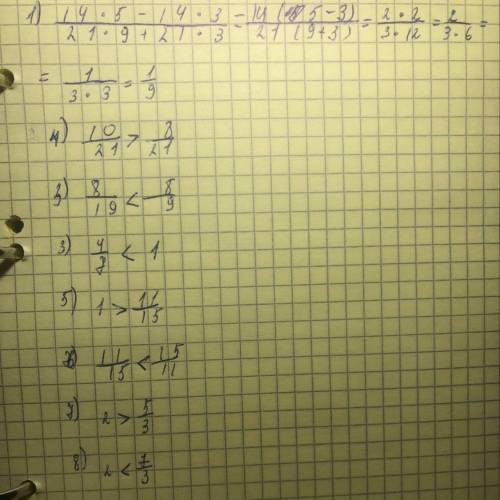 1) (14 · 5 − 14 · 3)/(21 · 9 + 21 · 3) = 14 (5−3)/21 (9+3) = (2 · 2)/(3 · 12) = 2/(3 · 6) =
= 1/(3 · 3) = 1/9
4) 10/21 > 8/21
3) 8/19 < 8/9
3) 4/7 < 1
5) 1 > 11/15
6) 11/15 < 15/11
7) 2 > 5/3
8) 2 < 7/3